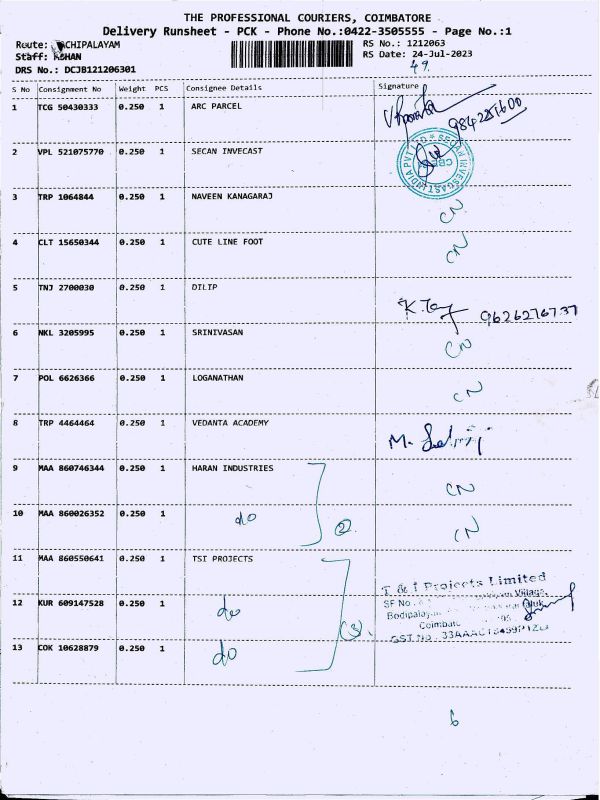 THE PROFESSIONAL COURIERS, COIMBATORE
Delivery Runsheet - PCK - Phone No.:0422-3505555 - Page No.:1
Route: CHIPALAYAM
RS No.: 1212063
Staff: ROHAN
RS Date: 24-Jul-2023
DRS No.: DCJB121206301
49
S No Consignment No Weight PCS Consignee Details Signature
1 TCG 50430333 0.250 1 ARC PARCEL
2 VPL 521075770 0.250 1 SECAN INVECAST
3 TRP 1064844 0.250 1 NAVEEN KANAGARAJ CN
4 CLT 15650344 0.250 1 CUTE LINE FOOT CN
5 TNJ 2700030 0.250 1 DILIP
9626276737
6 NKL 3205995 0.250 1 SRINIVASAN CN
7 POL 6626366 0.250 1 LOGANATHAN CN
8 TRP 4464464 0.250 1 VEDANTA ACADEMY M.
9 MAA 860746344 0.250 1 HARAN INDUSTRIES CN
10 MAA 860026352 0.250 1 do (2) CN
11 MAA 860550641 0.250 1 TSI PROJECTS
T & I Projects Limited
12 KUR 609147528 0.250 1 do (3).
SF No
Village,
Coimbato
GST No
13 COK 10628879 0.250 1 do
6